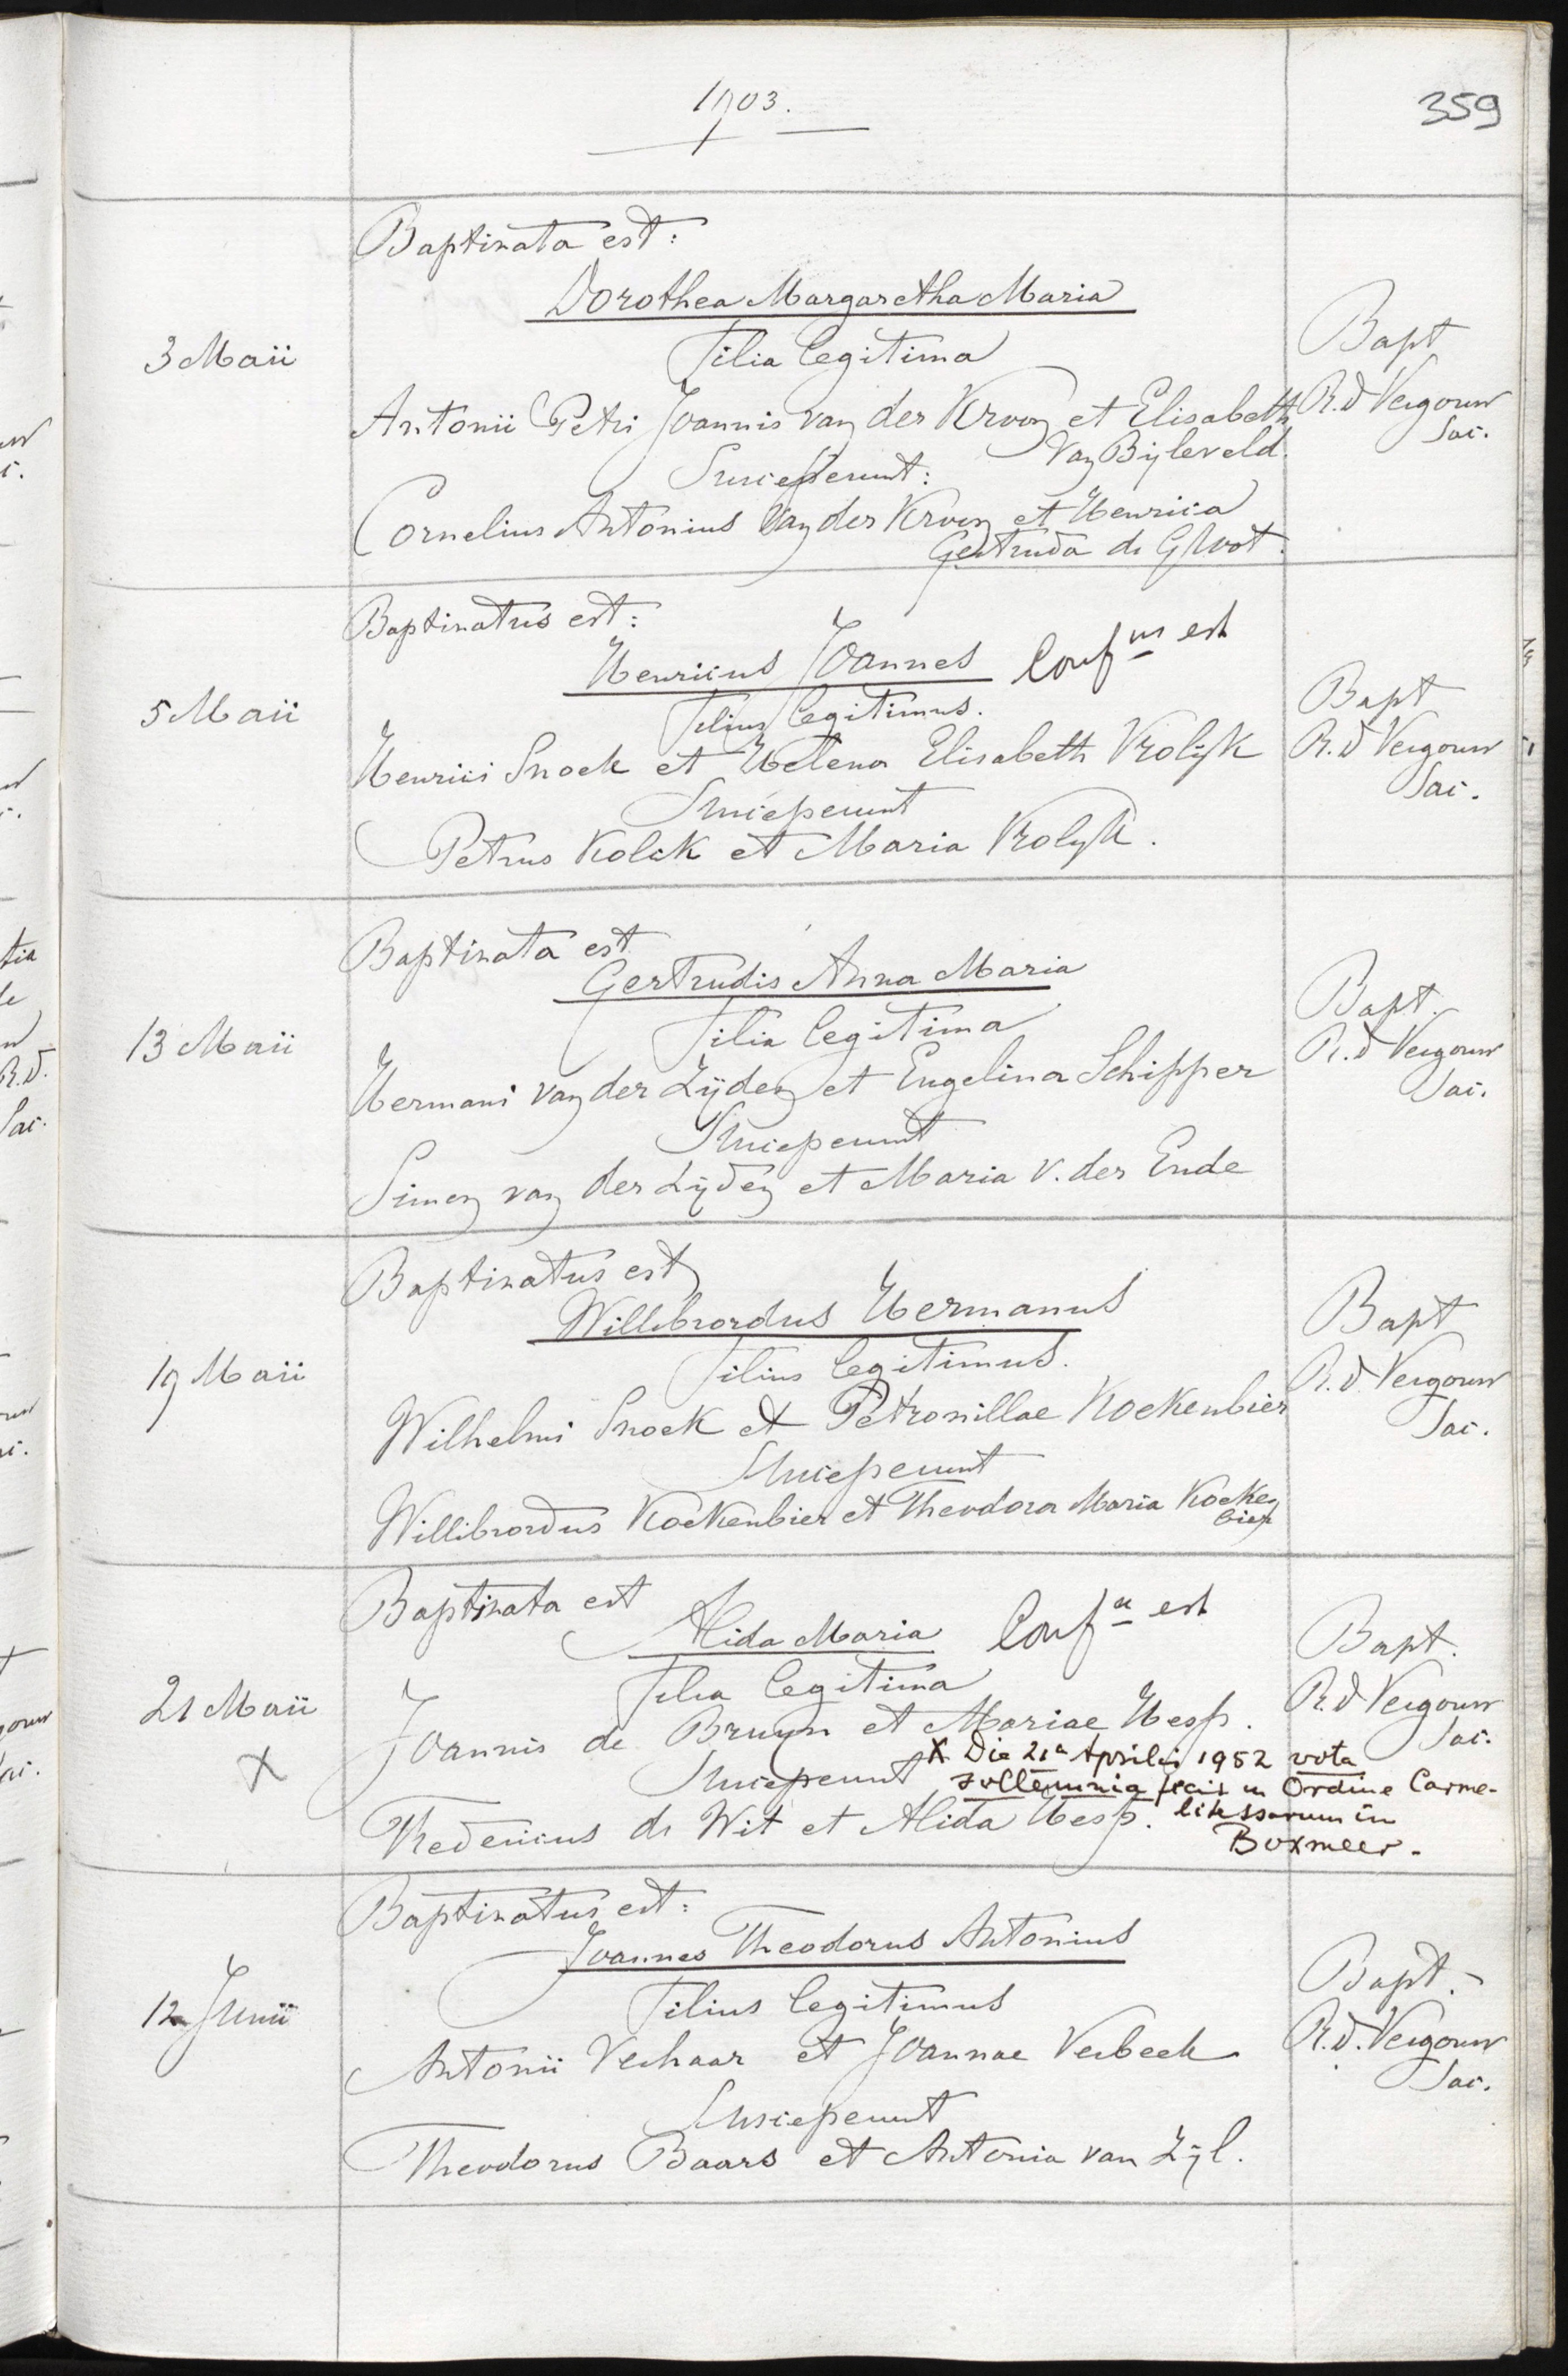 1903.
359
Baptisata est:
Dorothea Margaretha Maria
3 Maii
Filia legitima
Bapt
Antonii Petri Joannis van der Kroon et Elisabeth
van Bijleveld.
R. d Vergouw
Sac.
Susceperunt:
Cornelius Antonius van der Kroon et Henrica
Gertruda de Groot.
Baptisatus est:
Henricus Joannes Conf us est
5 Maii
Filius legitimus.
Bapt
Henrici Snoek et Helena Elisabeth Vrolijk
R. d Vergouw
Sac.
Susceperunt
Petrus Kolck et Maria Vrolijk.
Baptisata est
Gertrudis Anna Maria
13 Maii
Filia legitima
Bapt.
Hermani van der Zijden et Engelina Schipper
R. d Vergouw
Sac.
Susceperunt
Simon van der Zijden et Maria v. der Ende
Baptisatus est
Willibrordus Hermanus
19 Maii
Filius legitimus.
Bapt
Wilhelmi Snoek et Petronillae Koekenbier
R. d. Vergouw
Sac.
Susceperunt
Willibrordus Koekenbier et Theodora Maria Koeken
bier
Baptisata est
Alida Maria Conf a est
21 Maii
X
Filia legitima
Bapt.
Joannis de Bruyn et Mariae Hesp.
R. d Vergouw
Sac.
Susceperunt
X Die 21a Aprilis 1952 vota
sollemnia fecit in Ordine Carme-
litessarum in
Boxmeer.
Fredericus de Wit et Alida Hesp.
Baptisatus est:
Joannes Theodorus Antonius
12 Junii
Filius legitimus
Bapt.
Antonii Verhaar et Joannae Verbeek
R. d. Vergouw
Sac.
Susceperunt
Theodorus Baars et Antonia van Zijl.